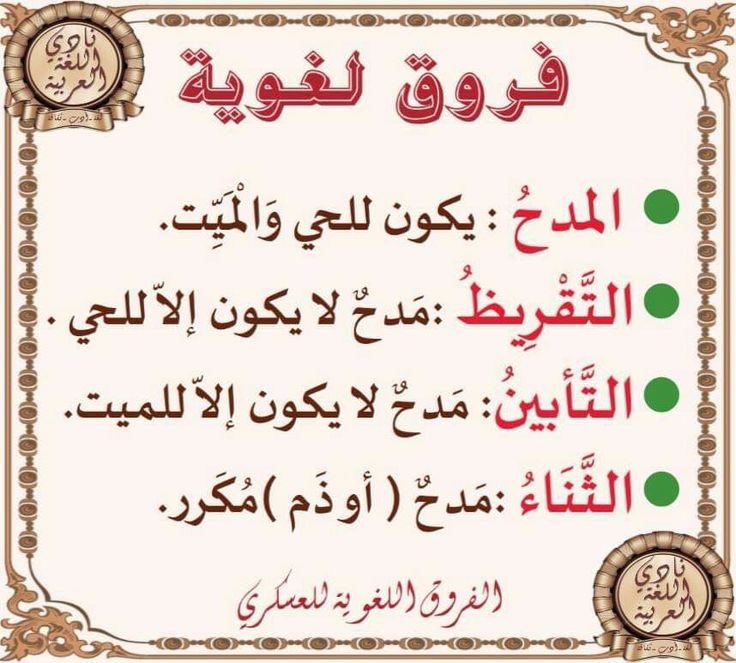 نادي
اللغة
العربية
لغة-أدب-ثقافة
فروق لغوية
المدحُ : يكون للحي وَالْمَيِّت.
التَّقْرِيظُ :مَدحٌ لا يكون إلاّ للحي .
التَّأبينُ: مَدحٌ لا يكون إلاّ للميت.
الثَّنَاءُ :مَدحٌ ( أو ذَم )مُكَرر.
الفروق اللغوية للعسكري
نادي
اللغة
العربية
لغة-أدب-ثقافة